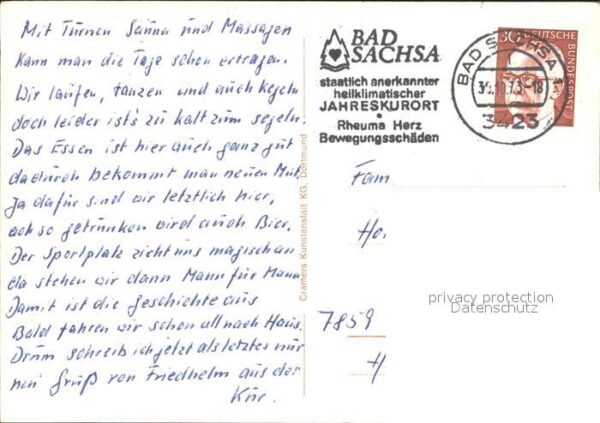 Mit Turnen Sauna und Massagen
kann man die Tage schon ertragen.
Wir laufen, tanzen und auch kegeln
doch leider ist's zu kalt zum segeln.
Das Essen ist hier auch ganz gut
dadurch bekommt man neuen Mut
Ja dafür sind wir letztlich hier,
ach so getrunken wird auch Bier.
Der Sportplatz zieht uns magisch an
da stehen wir dann Mann für Mann
Damit ist die Geschichte aus
Bald fahren wir schon all nach Haus.
Drum schreib ich jetzt als letztes nur
nen Gruß von Friedhelm aus der
Kur.
Cramers Kunstanstalt KG. Dortmund
BAD
SACHSA
staatlich anerkannter
heilklimatischer
JAHRESKURORT
Rheuma Herz
Bewegungsschäden
BAD SACHSA 1
-18
3423
30 DEUTSCHE
BUNDESPOST
Fam.
Ho
7859
H
privacy protection
Datenschutz